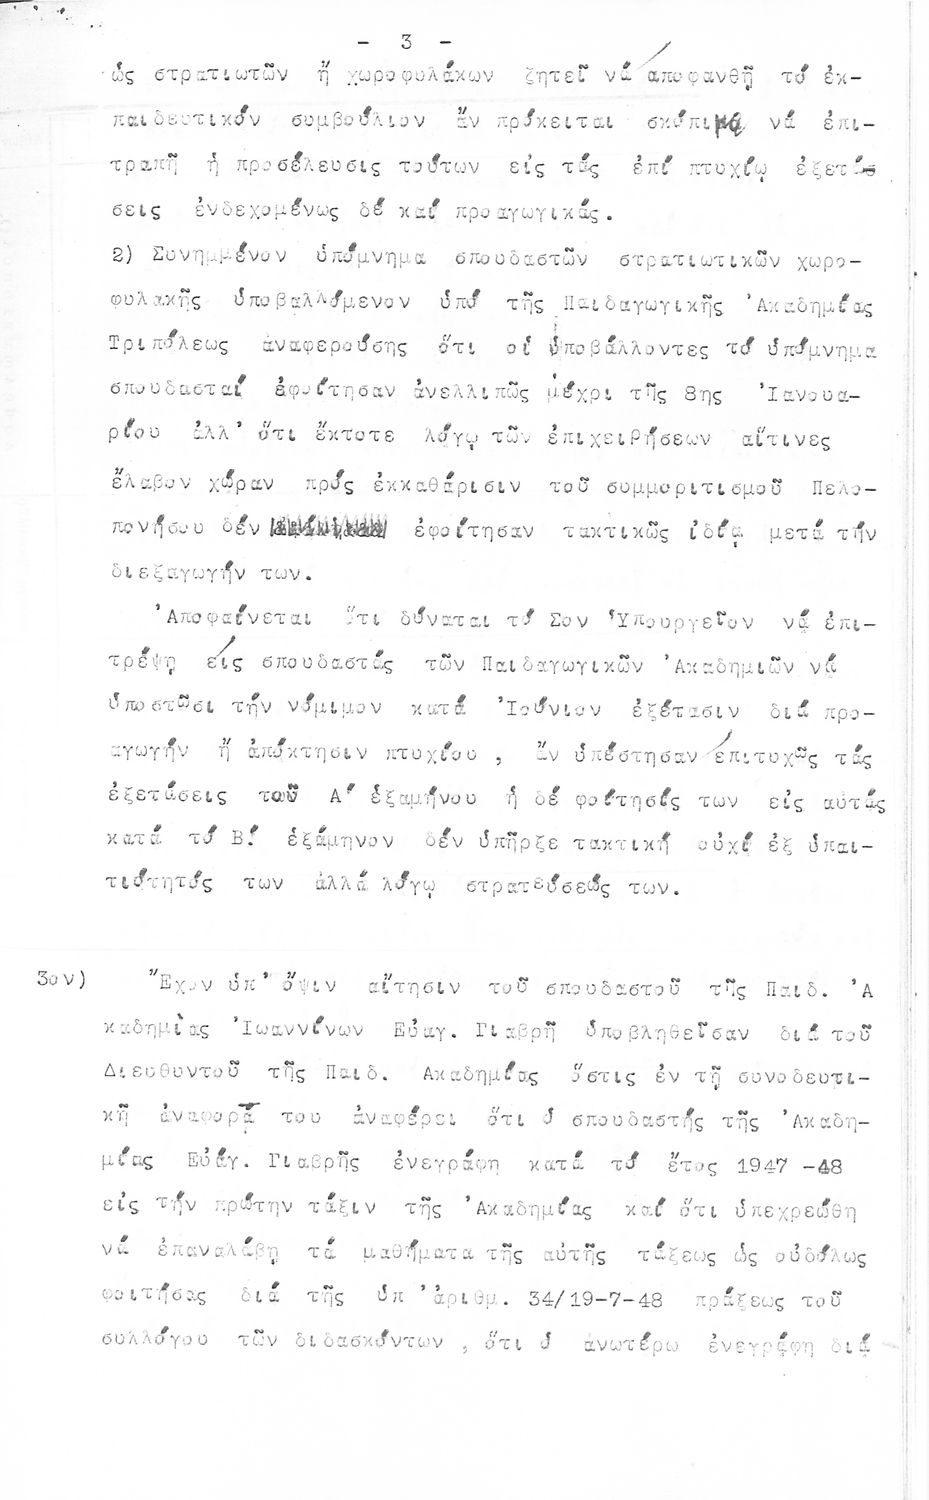 - 3 -
ὡς στρατιωτῶν ἤ χωροφυλάκων ζητεῖ νά ἀποφανθῇ τό ἐκ-
παιδευτικόν συμβούλιον ἄν πρόκειται σκόπιμο νά ἐπι-
τραπῇ ἡ προσέλευσις τούτων εἰς τάς ἐπί πτυχίῳ ἐξετά
σεις ἐνδεχομένως δέ καί προαγωγικάς.
2) Συνημμένον ὑπόμνημα σπουδαστῶν στρατιωτικῶν χωρο-
φυλακῆς ὑποβαλλόμενον ὑπό τῆς Παιδαγωγικῆς Ἀκαδημίας
Τριπόλεως ἀναφερούσης ὅτι οἱ ὑποβάλλοντες τό ὑπόμνημα
σπουδασταί ἐφοίτησαν ἀνελλιπῶς μέχρι τῆς 8ης Ἰανουα-
ρίου ἀλλ' ὅτι ἔκτοτε λόγῳ τῶν ἐπιχειρήσεων αἵτινες
ἔλαβον χώραν πρός ἐκκαθάρισιν τοῦ συμμοριτισμοῦ Πελο-
πονήσου δέν ἐφοίτησαν τακτικῶς ἰδίᾳ μετά τήν
διεξαγωγήν των.
Ἀποφαίνεται ὅτι δύναται τό Σον Ὑπουργεῖον νά ἐπι-
τρέψῃ εἰς σπουδαστάς τῶν Παιδαγωγικῶν Ἀκαδημιῶν νά
ὑποστῶσι τήν νόμιμον κατά Ἰούνιον ἐξέτασιν διά προ-
αγωγήν ἤ ἀπόκτησιν πτυχίου , ἄν ὑπέστησαν ἐπιτυχῶς τάς
ἐξετάσεις τοῦ Α' ἑξαμήνου ἡ δέ φοίτησίς των εἰς αὐτάς
κατά τό Β! ἑξάμηνον δέν ὑπῆρξε τακτική οὐχί ἐξ ὑπαι-
τιότητός των ἀλλά λόγῳ στρατεύσεώς των.
3ον) Ἔχον ὑπ' ὄψιν αἴτησιν τοῦ σπουδαστοῦ τῆς Παιδ. 'Α
καδημίας Ἰωαννίνων Εὐαγ. Γιαβρῆ ὑποβληθεῖσαν διά τοῦ
Διευθυντοῦ τῆς Παιδ. Ακαδημίας ὅστις ἐν τῇ συνοδευτι-
κῇ ἀναφορᾷ του ἀναφέρει ὅτι ὁ σπουδαστής τῆς Ἀκαδη-
μίας Εὐάγ. Γιαβρῆς ἐνεγράφη κατά τό ἔτος 1947 -48
εἰς τήν πρώτην τάξιν τῆς Ἀκαδημίας καί ὅτι ὑπεχρεώθη
νά ἐπαναλάβῃ τά μαθήματα τῆς αὐτῆς τάξεως ὡς οὐδόλως
φοιτήσας διά τῆς ὑπ 'ἀριθμ. 34/19-7-48 πράξεως τοῦ
συλλόγου τῶν διδασκόντων , ὅτι ὁ ἀνωτέρω ἐνεγράφη διά